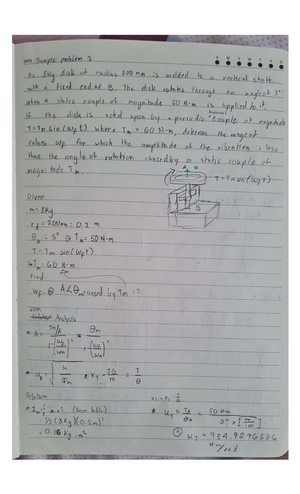 Sample problem 2
An 8kg disk of radius 200 mm is welded to a vertical shaft
with a fixed end at B. The disk rotates through an angle of 3°
when a static couple of magnitude 50 N-m is applied to it.
If the disk is acted upon by a periodic couple of magnitude
T=Tm sin(wft) where Tm = 60 N-m, determine the range of
values wf for which the amplitude of the vibration is less
than the angle of rotation caused by a static couple of
magnitude Tm.
T=Tm sin(wft)
Given:
m = 8kg
r = 200mm = 0.2 m
θA = 3° @ TA = 50N-m
T = Tm sin(wft)
Tm: 60 N-m
Find:
wf @ A<θm caused by Tm = ?
Analysis
A = Tm/k / 1-[wf/wn]² = θm / 1-[wf/wn]²
KT = JG/L = T/θ
Solution:
½(8kg)(0.2m)²
= 0.16 kg·m²
KT = TA/θA = 50 N·m / 3° × [π/180]
KT = 954.9296586
N·m/rad